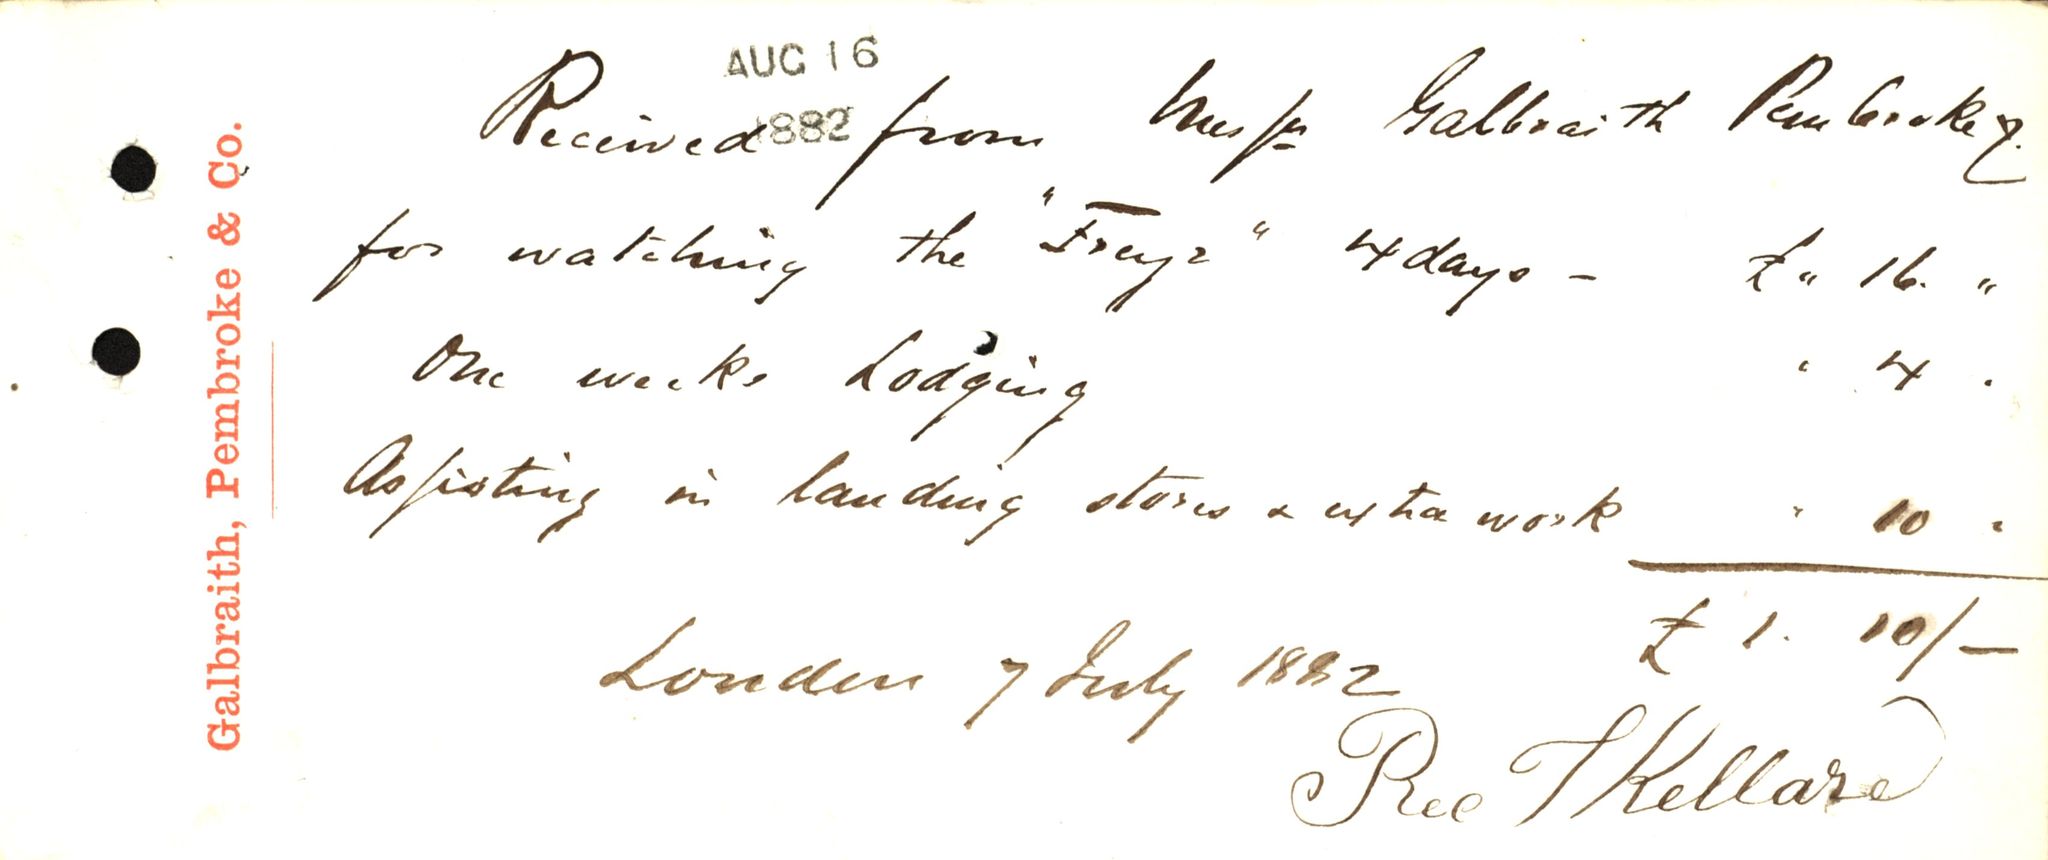 Galbraith, Pembroke & Co.
AUG 16
1882
Received from Messrs Galbraith Pembroke &
for watching the "Freyr" 4 days - £ " 16. "
One weeks Lodging " 4 "
Assisting in landing stores & extra work " 10 "
£ 1. 10/—
London 7 July 1882
Rec T Kellard